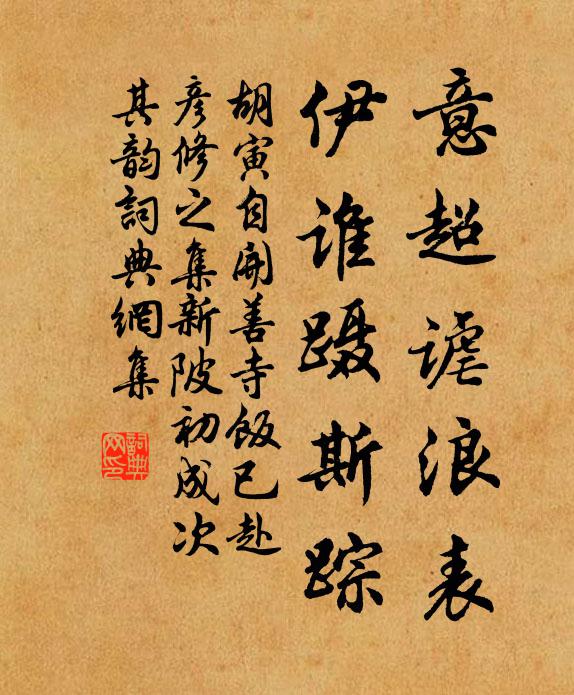 意超谑浪表
伊谁蹑斯踪
胡寅自開善寺飯已赴
彦修之集新陂初成次
其韵詞典網集
詞典
网印